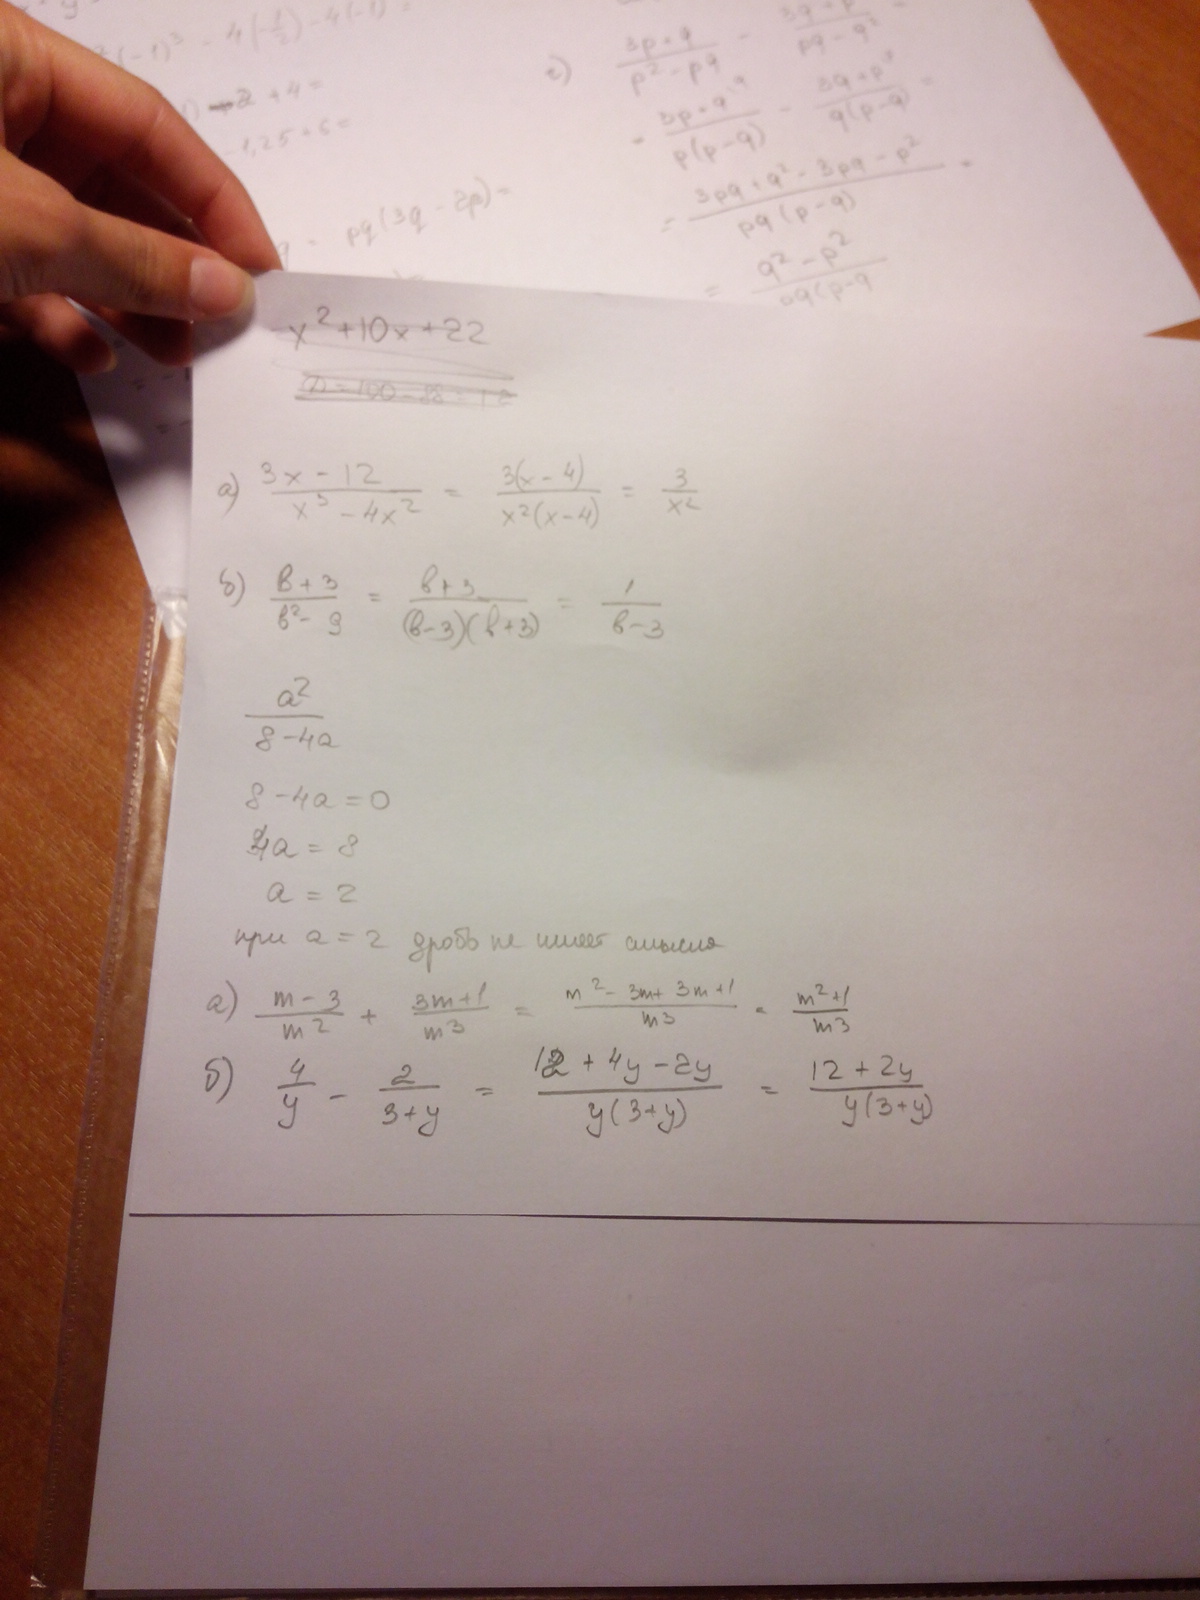 (-1)³ - 4(-1/2) - 4(-1) =
2 + 4 =
- 1,25 + 6 =
pq(3q - 2p) =
г) (3p+q)/(p² - pq) - (3q+p)/(pq - q²) =
= (3p+q)/(p(p-q)) - (3q+p)/(q(p-q)) =
= (3pq + q² - 3pq - p²)/(pq(p-q)) =
= (q² - p²)/(pq(p-q
x² + 10x + 22
D = 100 - 88 = 12
а) (3x - 12)/(x³ - 4x²) = 3(x - 4)/(x²(x - 4)) = 3/x²
б) (b + 3)/(b² - 9) = (b + 3)/((b - 3)(b + 3)) = 1/(b - 3)
a²/(8 - 4a)
8 - 4a = 0
4a = 8
a = 2
при a = 2 дробь не имеет смысла
а) (m - 3)/m² + (3m + 1)/m³ = (m² - 3m + 3m + 1)/m³ = (m² + 1)/m³
б) 4/y - 2/(3 + y) = (12 + 4y - 2y)/(y(3 + y)) = (12 + 2y)/(y(3 + y))